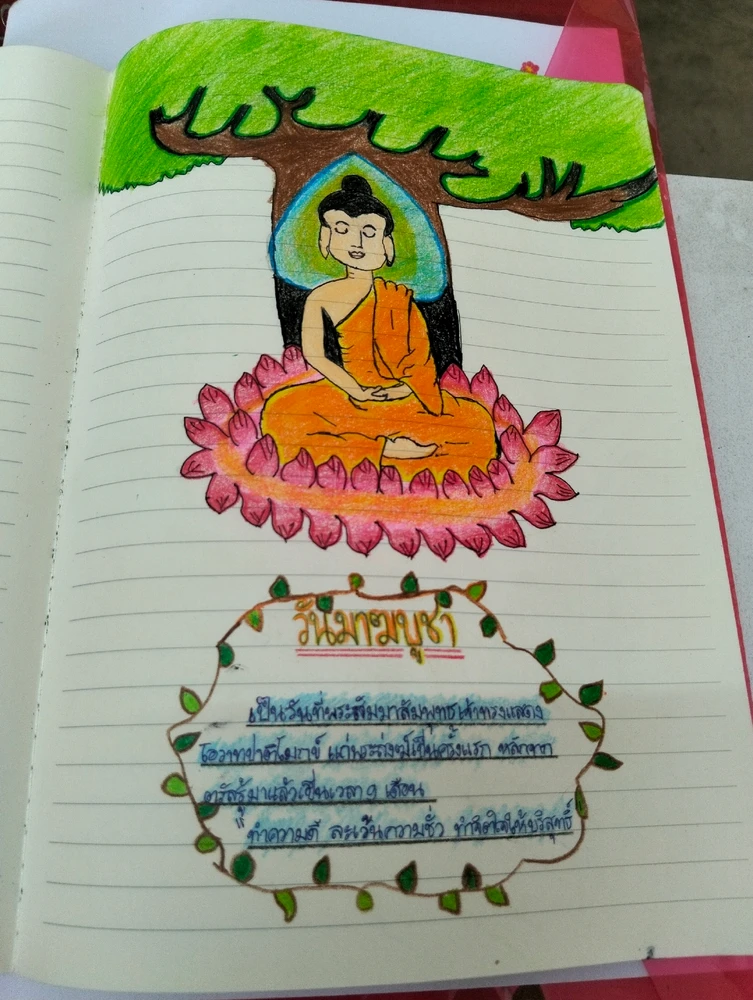 วันมาฆบูชา
เป็นวันที่พระสัมมาสัมพุทธเจ้าทรงแสดง
โอวาทปาติโมกข์ แก่พระสงฆ์เป็นครั้งแรก หลังจาก
ตรัสรู้มาแล้วเป็นเวลา ๙ เดือน
ทำความดี ละเว้นความชั่ว ทำจิตใจให้บริสุทธิ์